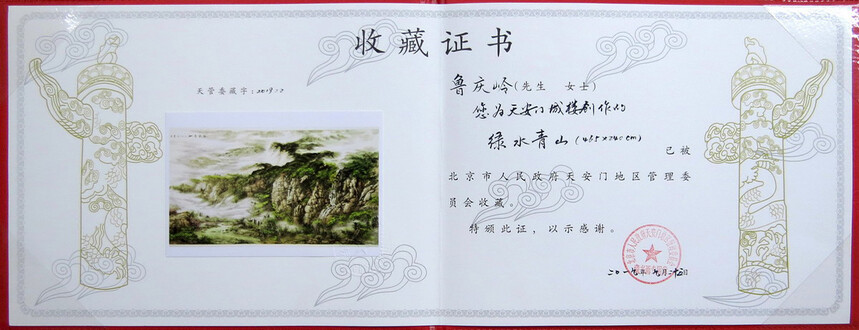 收藏证书
天管委藏字：2019.12
鲁庆岭（先生　女士）
您为天安门城楼创作的
绿水青山（485×240cm）
已被
北京市人民政府天安门地区管理委
员会收藏。
特颁此证，以示感谢。
二〇一九年九月二十五日